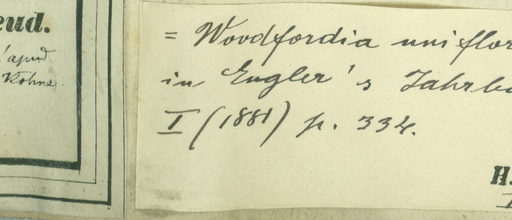 eud.
'apud
Kohne
= Woodfordia uniflor
in Engler's Jahrb
I (1881) p. 334.
H.